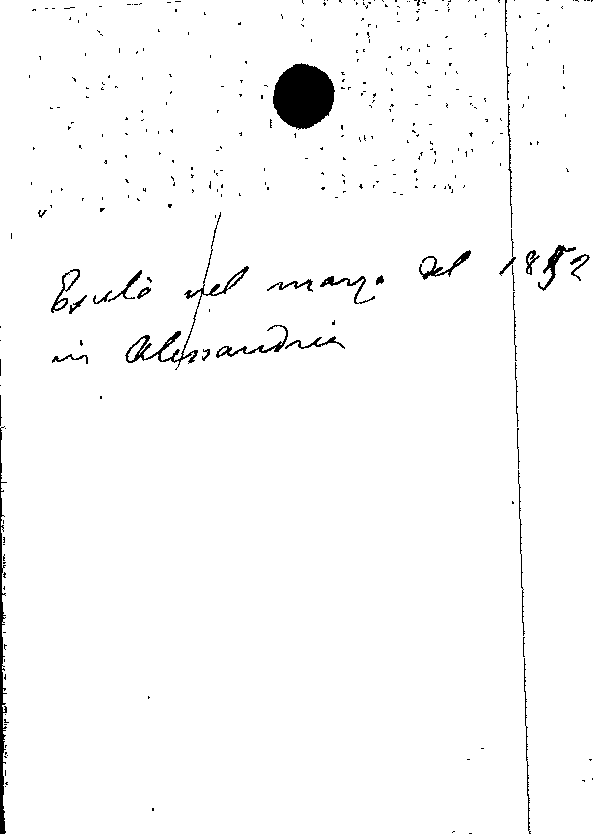 Esulò nel marzo del 1852
in Alessandria